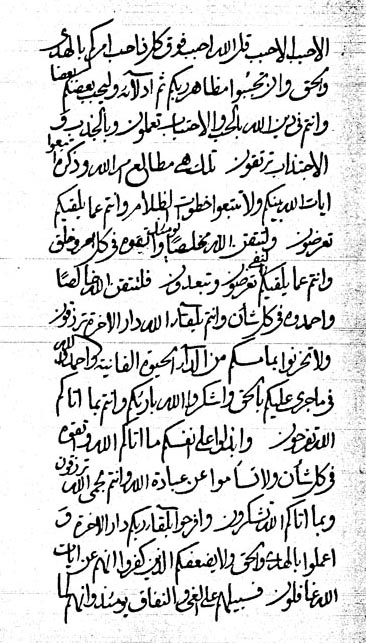 الاحب الاحب قل الله احب فوق كل ذا حب امركم بالهدى
والحق وان تحبوا مظاهر ربكم ثم ادلائه وليحب بعضكم بعضا
وانتم في دين الله بالحب والاجتذاب تعملون وبالجذب و
الاجتذاب ترتقون تلك هي مطالع امر الله وذكره
ايات الله بينكم ولا تتبعوا خطوات الظلام وانتم عما يلقيكم
تعرضون ولتتقن الله مخلصا واتقوه في كل امر وخلق
وانتم عما يلقيكم تعرضون وتبعدون فلتتقن الله
واحمدوه في كل شأن وانتم بلقاء الله دار الاخرة ترزقون
ولا تحزنوا بما مسكم من الدار الحيوة الفانية واحمدوا الله
في ما جرى عليكم بالحق واشكروا الله باريكم وانتم بما اتاكم
الله تفرحون وابذلوا على انفسكم ما اتاكم الله واتقوه
في كل شأن ولا تساموا عن عبادة الله وانتم الله ترزقون
وبما اتاكم الله تشكرون وافرحوا بلقاء ربكم دار الاخرة و
اعملوا بالهدى والحق ولا يضعفكم الذين كفروا انهم عن ايات
الله غافلون فسبيلهم على الغي والنفاق يومئذ وانهم